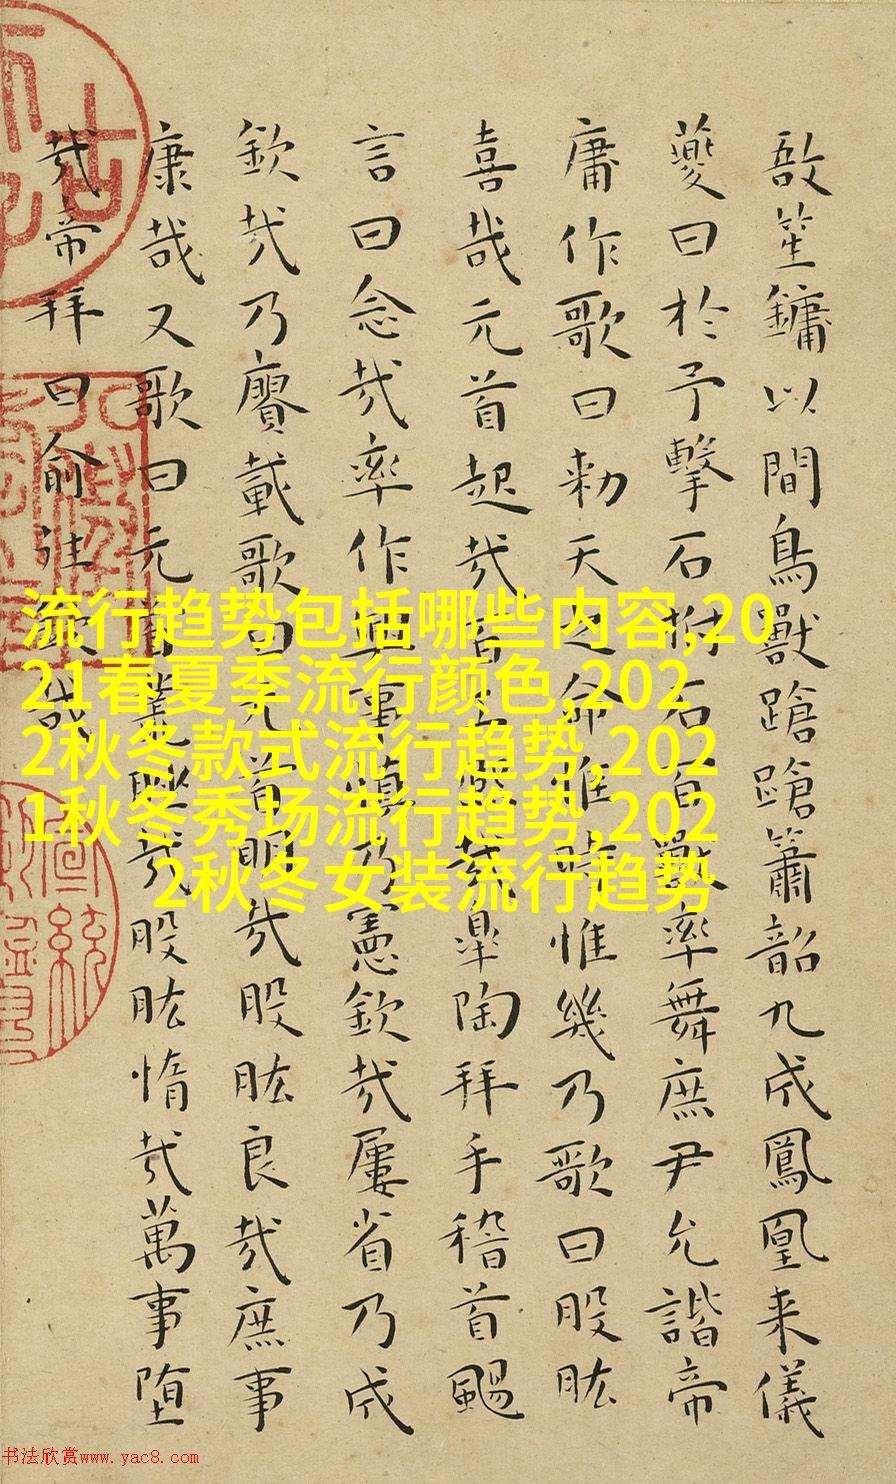 敔笙鏞以間鳥獸蹌蹌簫韶九成鳳凰来儀
夔曰於予擊石拊石百獸率舞庶尹允諧帝
庸作歌曰勑天之命惟時惟幾乃歌曰股肱
喜哉元首起哉百工熙哉皋陶拜手稽首颺
言曰念哉率作興事慎乃憲欽哉屢省乃成
欽哉乃賡載歌曰元首明哉股肱良哉庶事
康哉又歌曰元首叢脞哉股肱惰哉萬事墮
哉帝拜曰俞往欽哉
流行趋势包括哪些内容,20
21春夏季流行颜色,202
2秋冬款式流行趋势,202
1秋冬秀场流行趋势,202
2秋冬女装流行趋势
书法欣赏www.yac8.com